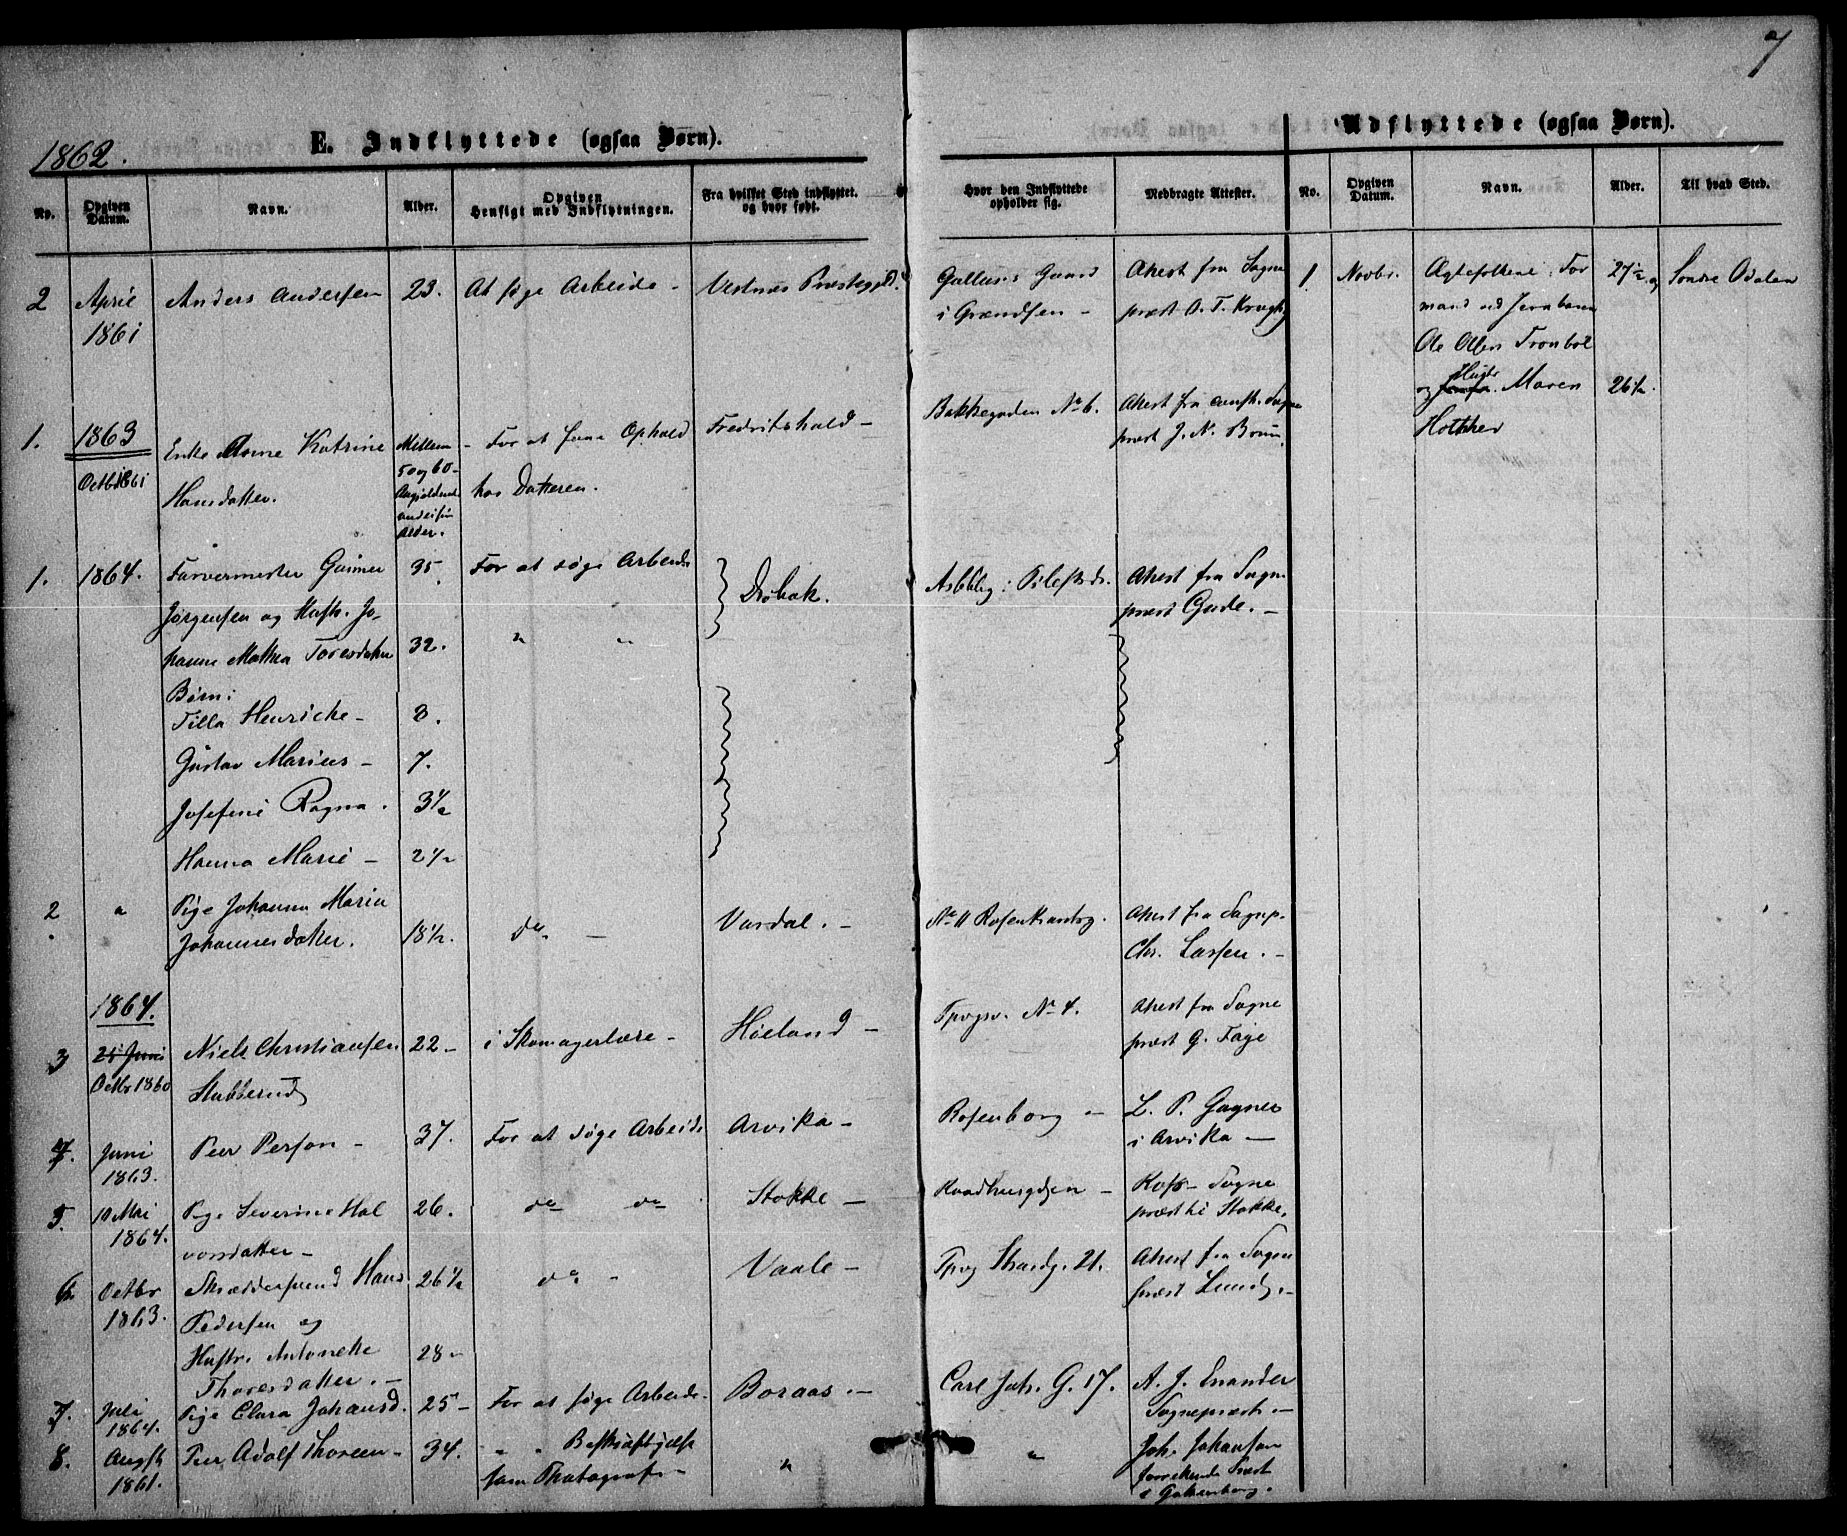 7
1862.
E. Indflyttede (ogsaa Børn).
Udflyttede (ogsaa Børn).
No.
Opgiven Datum.
Navn.
Alder.
Opgiven Hensigt med Indflytningen.
Fra hvilket Sted indflyttet. og hvor født.
Hvor den Indflyttede opholder sig.
Medbragte Attester.
No.
Opgiven Datum.
Navn.
Alder.
Til hvad Sted.
2 April Anders Andersen 23. At søge Arbeide - Vestnæs Præstegjeld. Gallums Gaard Attest fra Sogne
1861 i Grændsen - præst O. T. Krogh
1. Novbr. Ægtefolkene: For 27½ og Søndre Odalen
mand ved Jernbanen
Ole Olsen Tronbøl
og Hustr. Maren 26½.
1. 1863 Enke Anne Katrine Mellem - For at faae Ophold Fredrikshald - Bakkegaden No 6. Attest fra Sogne
Octbr 1861 Hansdatter. 50 og 60 hos Datteren. præst J. N. Brun
Alder.
1. 1864. Farvermester Gunner 35. For at søge Arbeide Drøbak. Attest fra Sogne
Jørgensen og Hustr. Jo- præst Gude. -
hanne Mathea Toresdatter 32. " "
Børn:
Tilla Henricke - 8.
Gustav Marius - 7.
Josefine Ragna. 3½
Hanna Marie - 2½
2 " Pige Johanna Maria No 11 Rosenkrantzg. Attest fra Sognep.
Johannesdatter. 18½. do - Vardal. - Chr. Lassen. -
1864.
3 21 Juni Niels Christiansen 22 - i Skomagerlære - Høland - Tpvgsv. No 4. Attest fra Sogne
Octbr 1860 Stubberud præst G. Faye
4. Juni Peer Person - 37. For at søge Arbeide Arvika - Rosenborg - L. P. Gagner
1863. i Arvika -
5. 10 Mai Pige Severine Hal 26. do do Stokke - Raadhusgden - Sogne
1864. vorsdatter - præst til Stokke.
6. Octbr Skræddersvend Hans 26½ do - Vaale - Tpvg Strandg. 21. Attest fra Sogne
1863. Pedersen og præst Lund. -
Hustr. Antonette 28 -
Thoresdatter. -
7. Juli Pige Clara Johansd. 25 - For at søge Arbeide - Boraas. - Carl Joh. G. 17. A. J. Enander
1864. Sognepræst -
8. Augst Peer Adolf Thoreen - 34. " " Beskjæftigelse " " Joh. Johansson
1861. som Photograf - Præst
i Gothenborg.